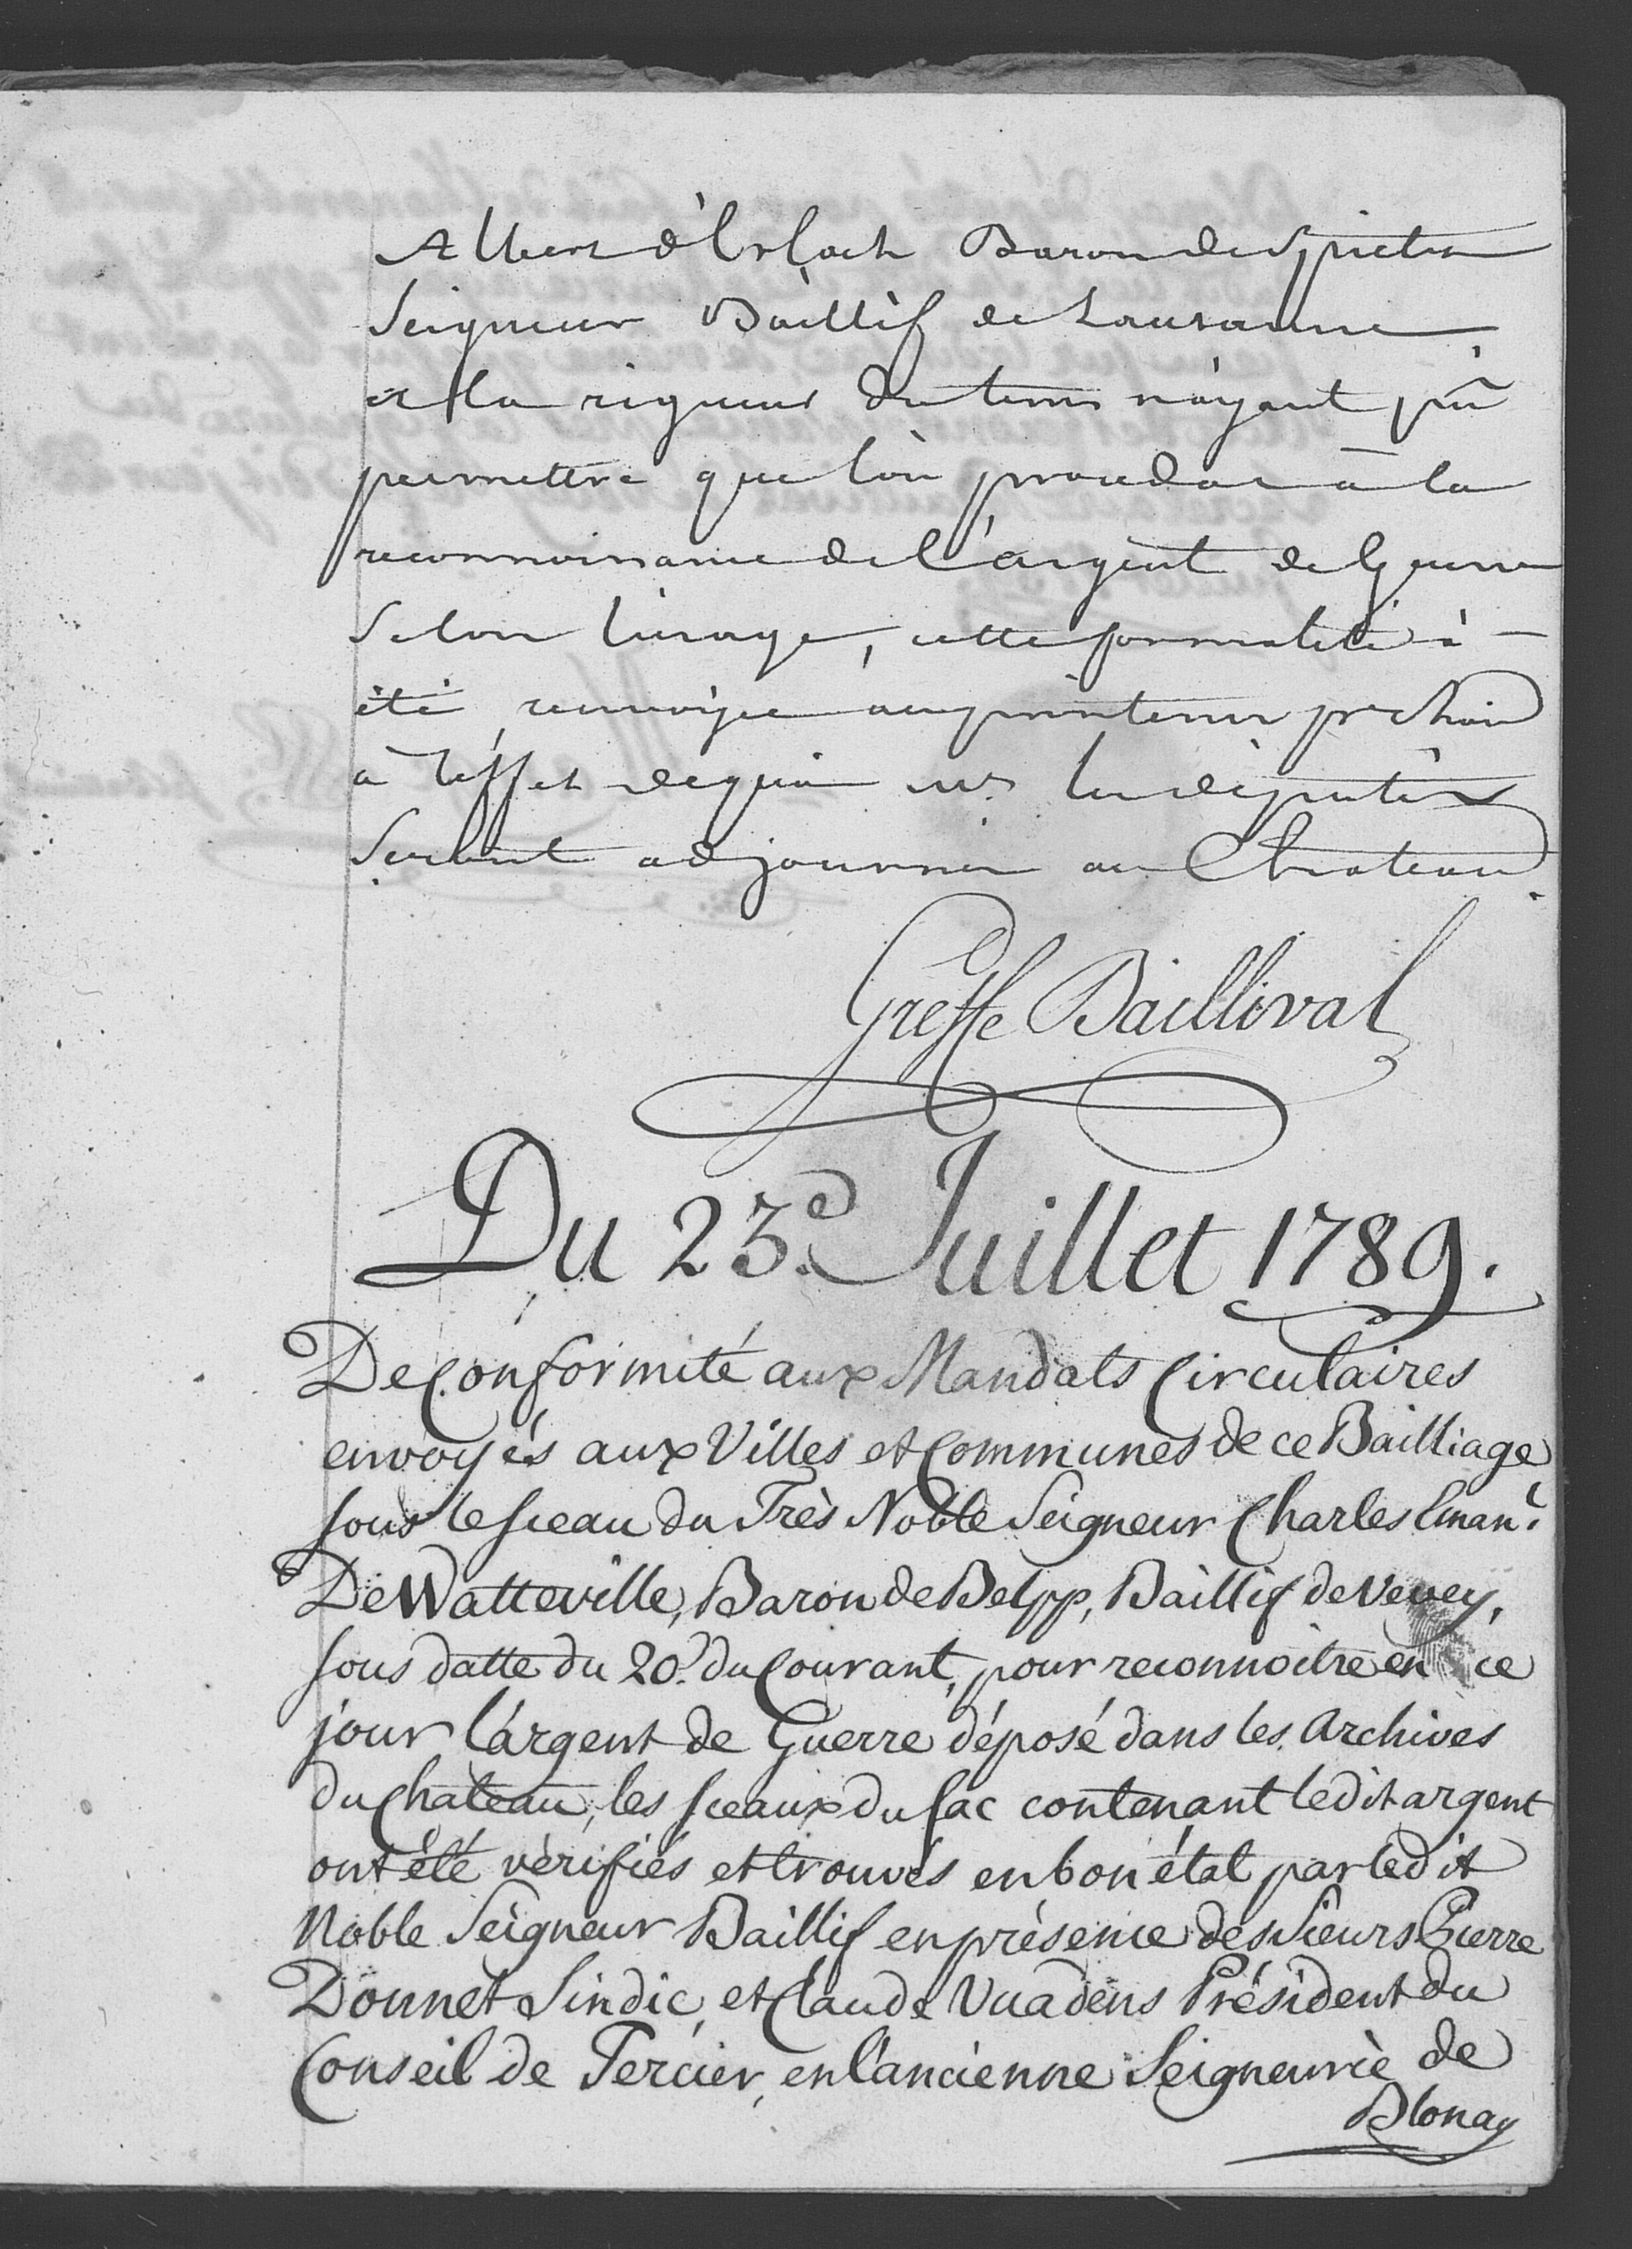 Albert d'Erlach Baron de Spietz
Seigneur Baillif de Lausanne
et la rigueur du tems n'ayant pû
permettre que l'on procedat à la
reconnoissance de l'argent de Guerre
selon l'usage, cette formalité à
été renvoyée au printems prchain
à l'effet dequoi mrs les députés
seront adjournés au Chateau.
Greffe Baillival
Du 23e. Juillet 1789.
De Conformité aux Mandats Circulaires
envoyés aux Villes et Communes de ce Bailliage
sous le sceau du Très Noble Seigneur Charles Eman.l
De Watteville, Baron de Belpp, Baillif de Vevey,
sous datte du 20e. du Courant, pour reconnoitre en ce
jour l'argent de Guerre déposé dans les Archives
du Chateau, les sceaux du sac contenant ledit argent
ont été vérifiés et trouvés en bon état par ledit
Noble Seigneur Baillif en présence des Sieurs Pierre
Donnet Sindic, et Claude Vuadens Président du
Conseil de Tercier, en l'ancienne Seigneurie de
Blonay